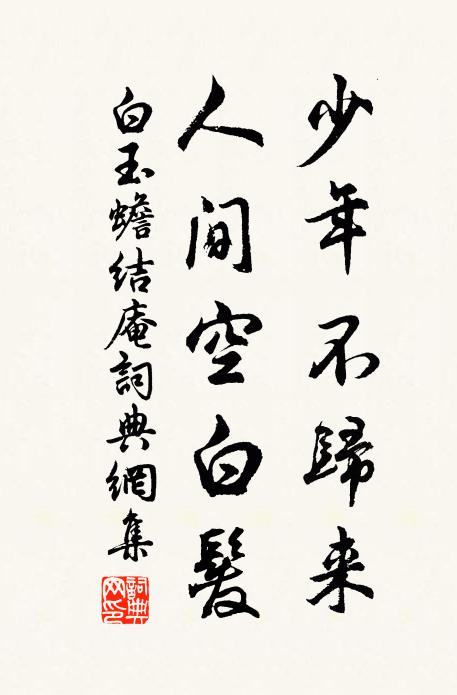 少年不歸来
人间空白髮
白玉蟾结庵詞典網集
詞典网印